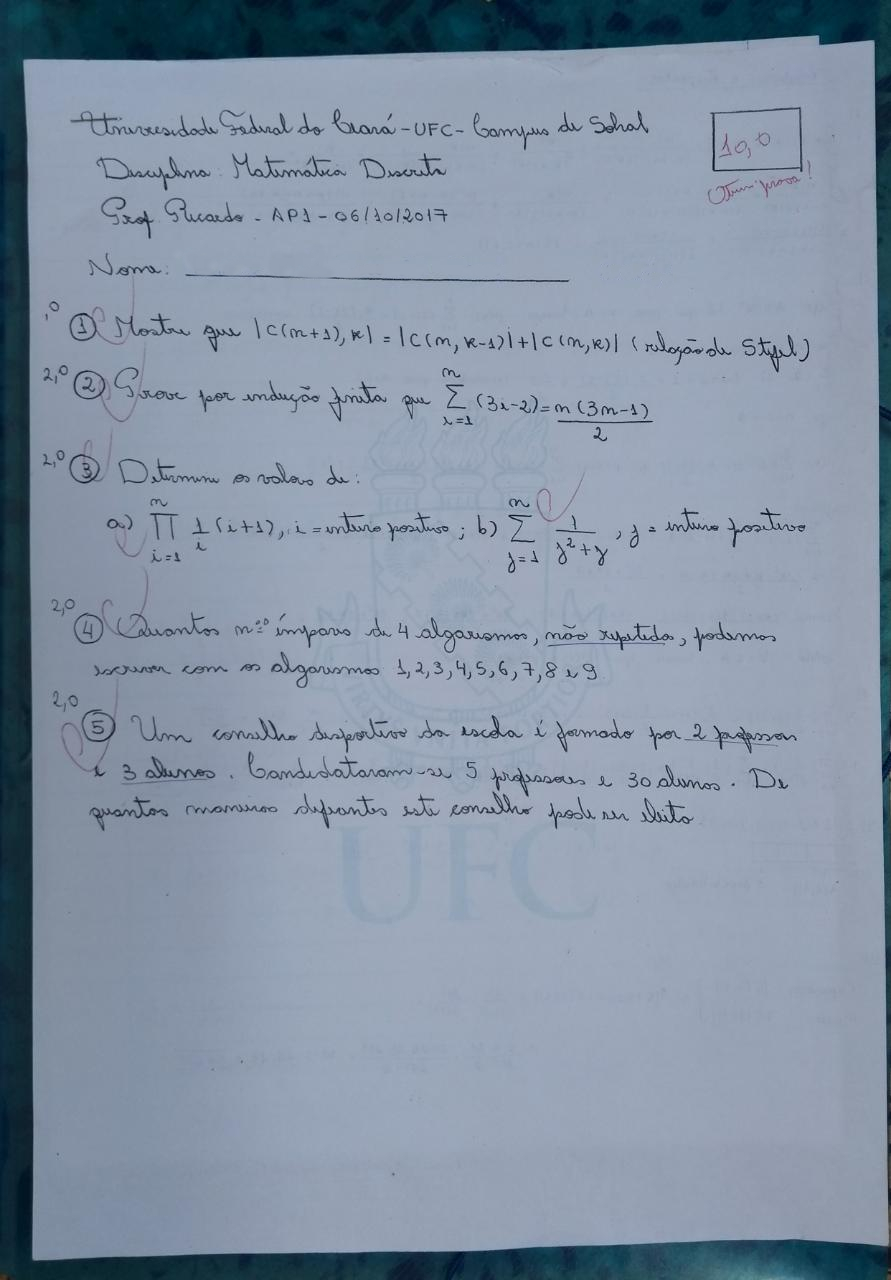 Universidade Federal do Ceará - UFC - Campus de Sobral
10,0
Disciplina: Matemática Discreta
Ótima prova!
Prof Ricardo - AP1 - 06/10/2017
Nome:
,0 ① Mostre que |C(n+1),k| = |C(n,k-1)|+|C(n,k)| (relação de Stifel)
2,0 ② Prove por indução finita que n∑i=1 (3i-2) = n(3n-1)/2
2,0 ③ Determine os valores de:
a) n∏i=1 1/i (i+1), i = inteiro positivo ; b) n∑j=1 1/j²+j , j = inteiro positivo
2,0 ④ Quantos nºs ímpares de 4 algarismos, não repetidos, podemos
escrever com os algarismos 1, 2, 3, 4, 5, 6, 7, 8 e 9
2,0 ⑤ Um conselho desportivo da escola é formado por 2 professores
e 3 alunos. Candidataram-se 5 professores e 30 alunos. De
quantas maneiras diferentes este conselho pode ser eleito
UFC